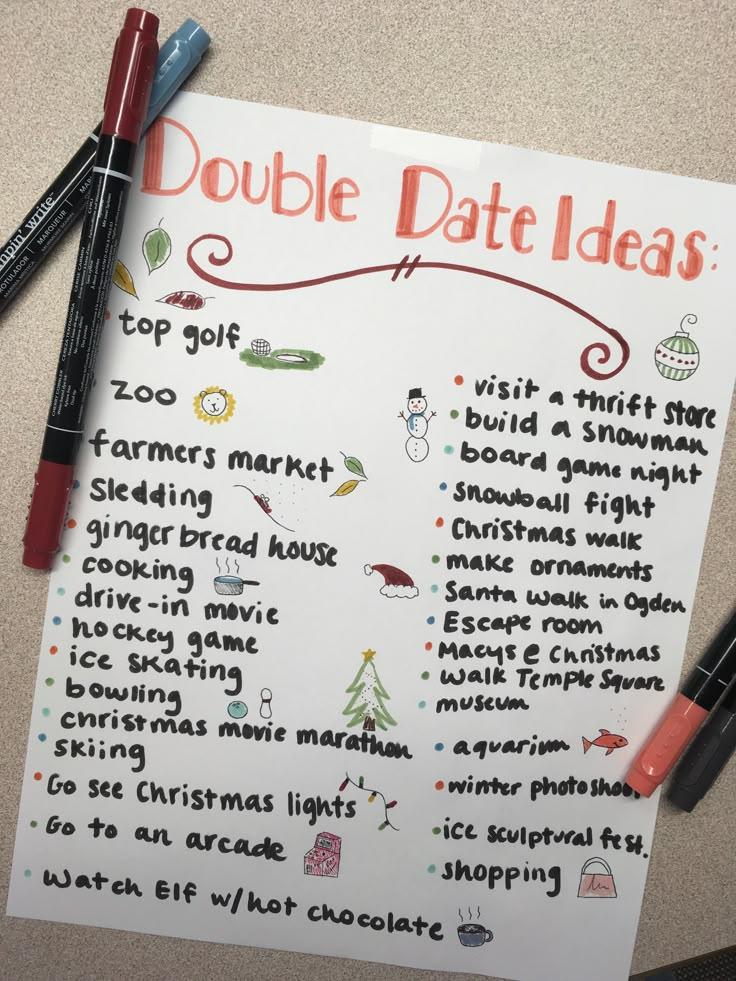 Double Date Ideas:
top golf
zoo
farmers market
Sledding
gingerbread house
cooking
drive-in movie
hockey game
ice skating
bowling
christmas movie marathon
skiing
Go see Christmas lights
Go to an arcade
Watch Elf w/hot chocolate
visit a thrift store
build a snowman
board game night
snowball fight
Christmas walk
make ornaments
Santa walk in Ogden
Escape room
Macys @ Christmas
Walk Temple Square
museum
aquarium
winter photoshoot
ice sculptural fest.
shopping
write
MARQUEUR